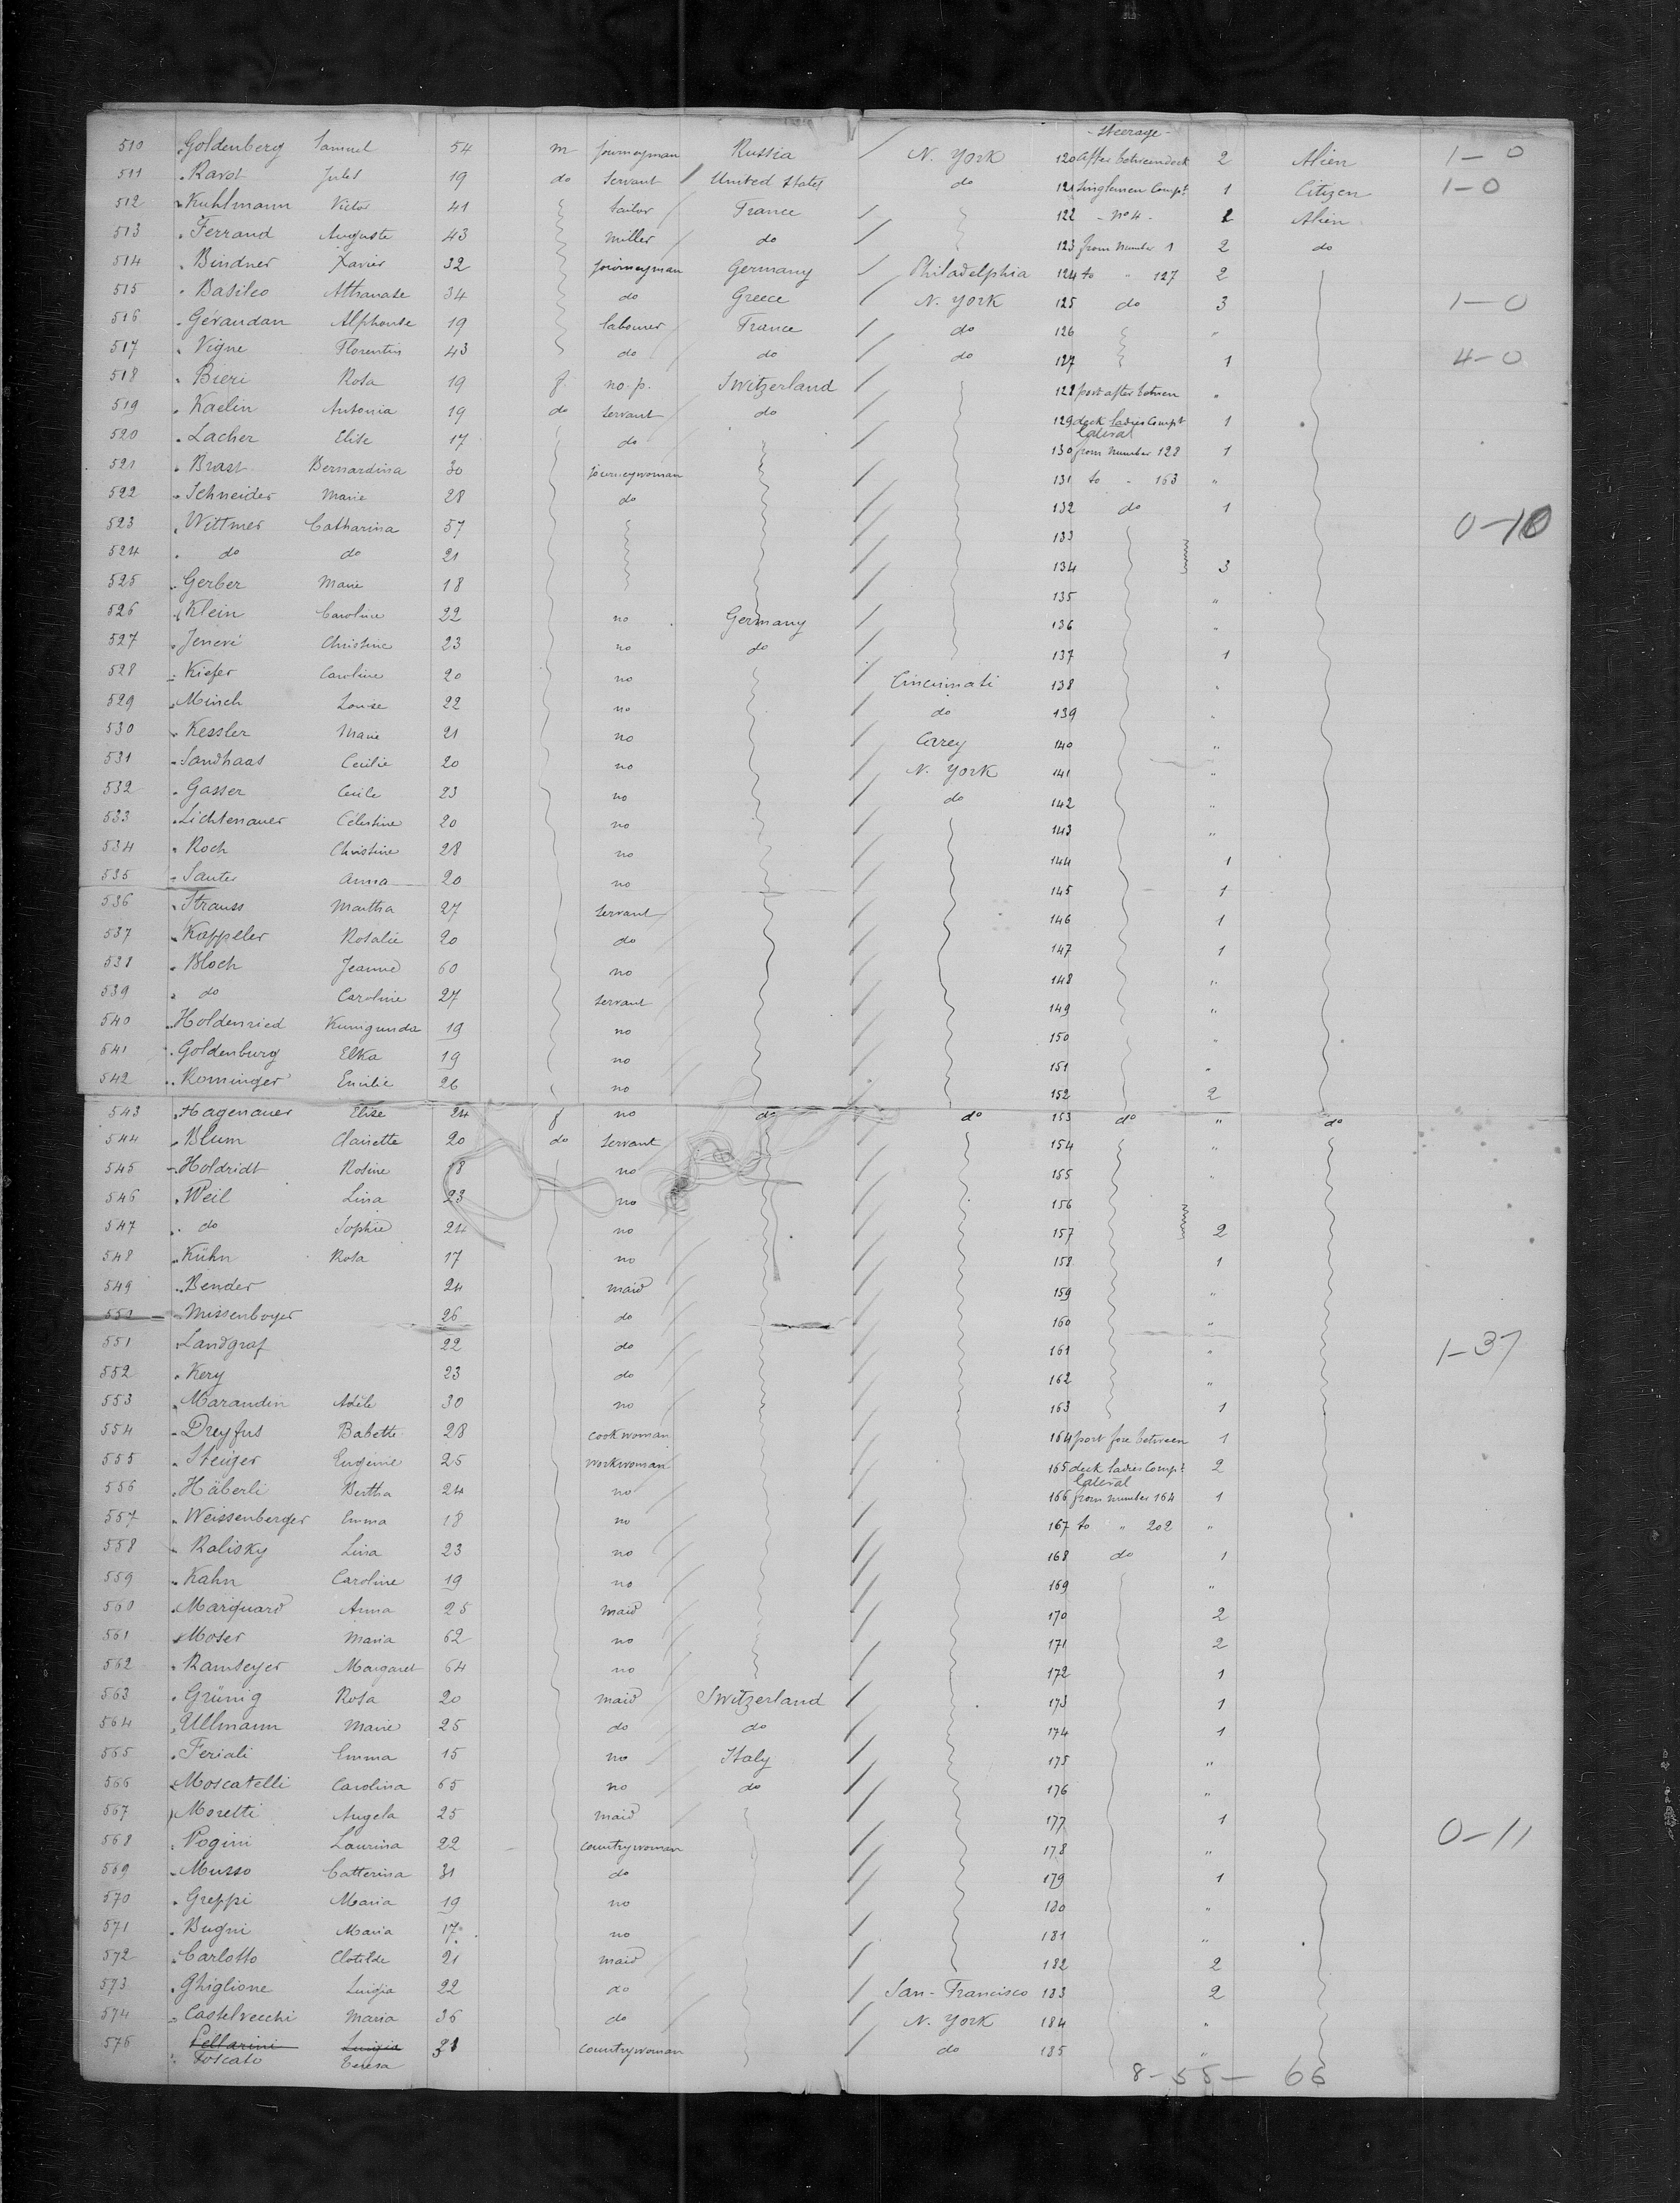 - Steerage -
510 Goldenberg Samuel 54 m journeyman Russia / N. York 120 after betweendeck 2 Alien 1-0
511 Ravot Jules 19 do servant United States do 121 Singlemen Compt 1 Citizen 1-0
512 Kuhlmann Victor 41 tailor France / 122 - No 4 - 2 Alien
513 Ferrand Auguste 43 miller do / 123 from number 1 2 do
514 Bindner Xavier 32 journeyman Germany / Philadelphia 124 to " 127 2
515 Basileo Athanase 34 do Greece / N. York 125 do 3 1-0
516 Géraudan Alphonse 19 labourer France / do 126 "
517 Vigne Florentin 43 do do / do 127 1 4-0
518 Bieri Rosa 19 f no. p. Switzerland / 128 port after between "
519 Kaelin Antonia 19 do servant do / 129 deck ladies Compt 1
lateral
520 Lacher Elise 17 do / 130 from number 128 1
521 Brast Bernardina 30 journeywoman / 131 to " 163 "
522 Schneider Marie 28 do / 132 do 1
523 Wittmer Catharina 57 / 133 0-10
524 do do 21 / 134 3
525 Gerber Marie 18 / 135 "
526 Klein Caroline 22 no Germany / 136 "
527 Jenevé Christine 23 no do / 137 1
528 Kiefer Caroline 20 no / Cincinnati 138 "
529 Minch Louise 22 no / do 139 "
530 Kessler Marie 21 no / Carey 140 "
531 Sandhaas Cecilie 20 no / N. York 141 "
532 Gasser Cecile 23 no / do 142 "
533 Lichtenauer Célestine 20 no / 143 "
534 Roch Christine 28 no / 144 1
535 Sauter Anna 20 no / 145 1
536 Strauss Martha 27 servant / 146 1
537 Kappeler Rosalie 20 do / 147 1
538 Bloch Jeanne 60 no / 148 "
539 do Caroline 27 servant / 149 "
540 Holdenried Kunigunda 19 no / 150 "
541 Goldenburg Elka 19 no / 151 "
542 Rominger Emilie 26 no / 152 2
543 Hagenauer Elise 24 f no do do 153 do " do
544 Blum Clairette 20 do servant / 154 "
545 Holdridt Rosine 18 no / 155 "
546 Weil Lina 23 no / 156
547 do Sophie 24 no / 157 2
548 Kühn Rosa 17 no / 158 1
549 Bender 24 maid / 159 "
550 Missenboyer 26 do / 160 "
551 Landgraf 22 do / 161 " 1-37
552 Kery 23 do / 162 "
553 Marandin Adèle 30 no / 163 1
554 Dreyfus Babette 28 cookwoman / 164 port fore between 1
555 Steiger Eugenie 25 workwoman / 165 deck ladies Compt 2
lateral
556 Häberli Bertha 24 no / 166 from number 164 1
557 Weissenberger Emma 18 no / 167 to " 202 "
558 Ralisky Lina 23 no / 168 do 1
559 Kahn Caroline 19 no / 169 "
560 Marquard Anna 25 maid / 170 2
561 Moser Maria 62 no / 171 2
562 Ramseyer Margaret 64 no / 172 1
563 Grünig Rosa 20 maid Switzerland / 173 1
564 Ullmann Marie 25 do do / 174 1
565 Feriali Emma 15 no Italy / 175 "
566 Moscatelli Carolina 65 no do / 176 "
567 Moretti Angela 25 maid / 177 1
568 Pogini Laurina 22 countrywoman / 178 " 0-11
569 Musso Catterina 31 do / 179 1
570 Greppi Maria 19 no / 180 "
571 Bugni Maria 17 no / 181 "
572 Carlotto Clotilde 21 maid / 182 2
573 Ghiglione Luigia 22 do / San-Francisco 183 2
574 Castelvecchi Maria 36 do / N. York 184 "
575 Pellarini Luigia 31 countrywoman / do 185 "
Toscato Teresa
8-55- 66